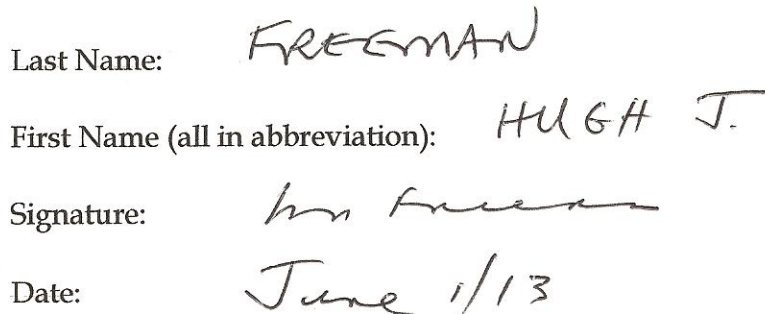 Last Name: FREEMAN
First Name (all in abbreviation): HUGH J.
Signature: Freeman
Date: June 1/13